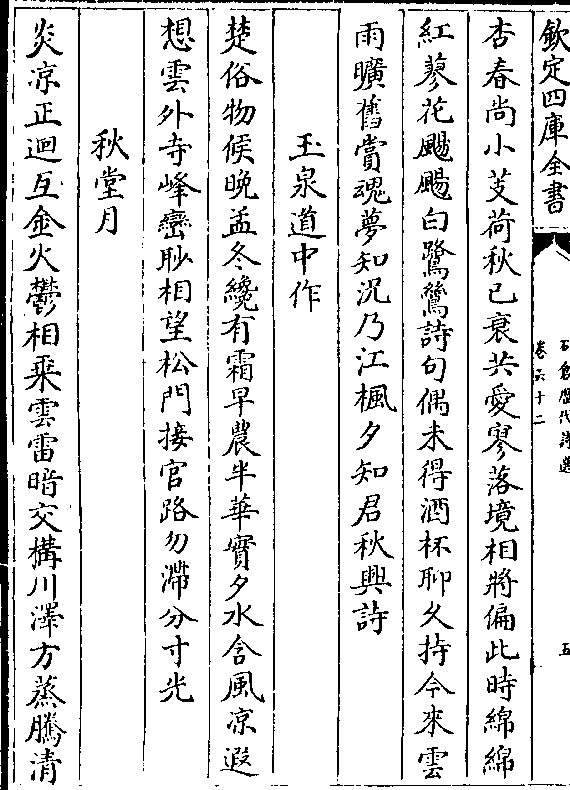 欽定四庫全書
石倉歷代詩選
卷六十二
五
杏春尚小芰荷秋已衰共愛寥落境相將偏此時綿綿
紅蓼花颺颺白鷺鷥詩句偶未得酒杯聊久持今來雲
雨曠舊賞魂夢知況乃江楓夕知君秋興詩
玉泉道中作
楚俗物候晚孟冬纔有霜早農半華實夕水含風涼遐
想雲外寺峰巒眇相望松門接官路勿滯分寸光
秋堂月
炎凉正迴互金火鬱相乘雲雷暗交構川澤方蒸騰清